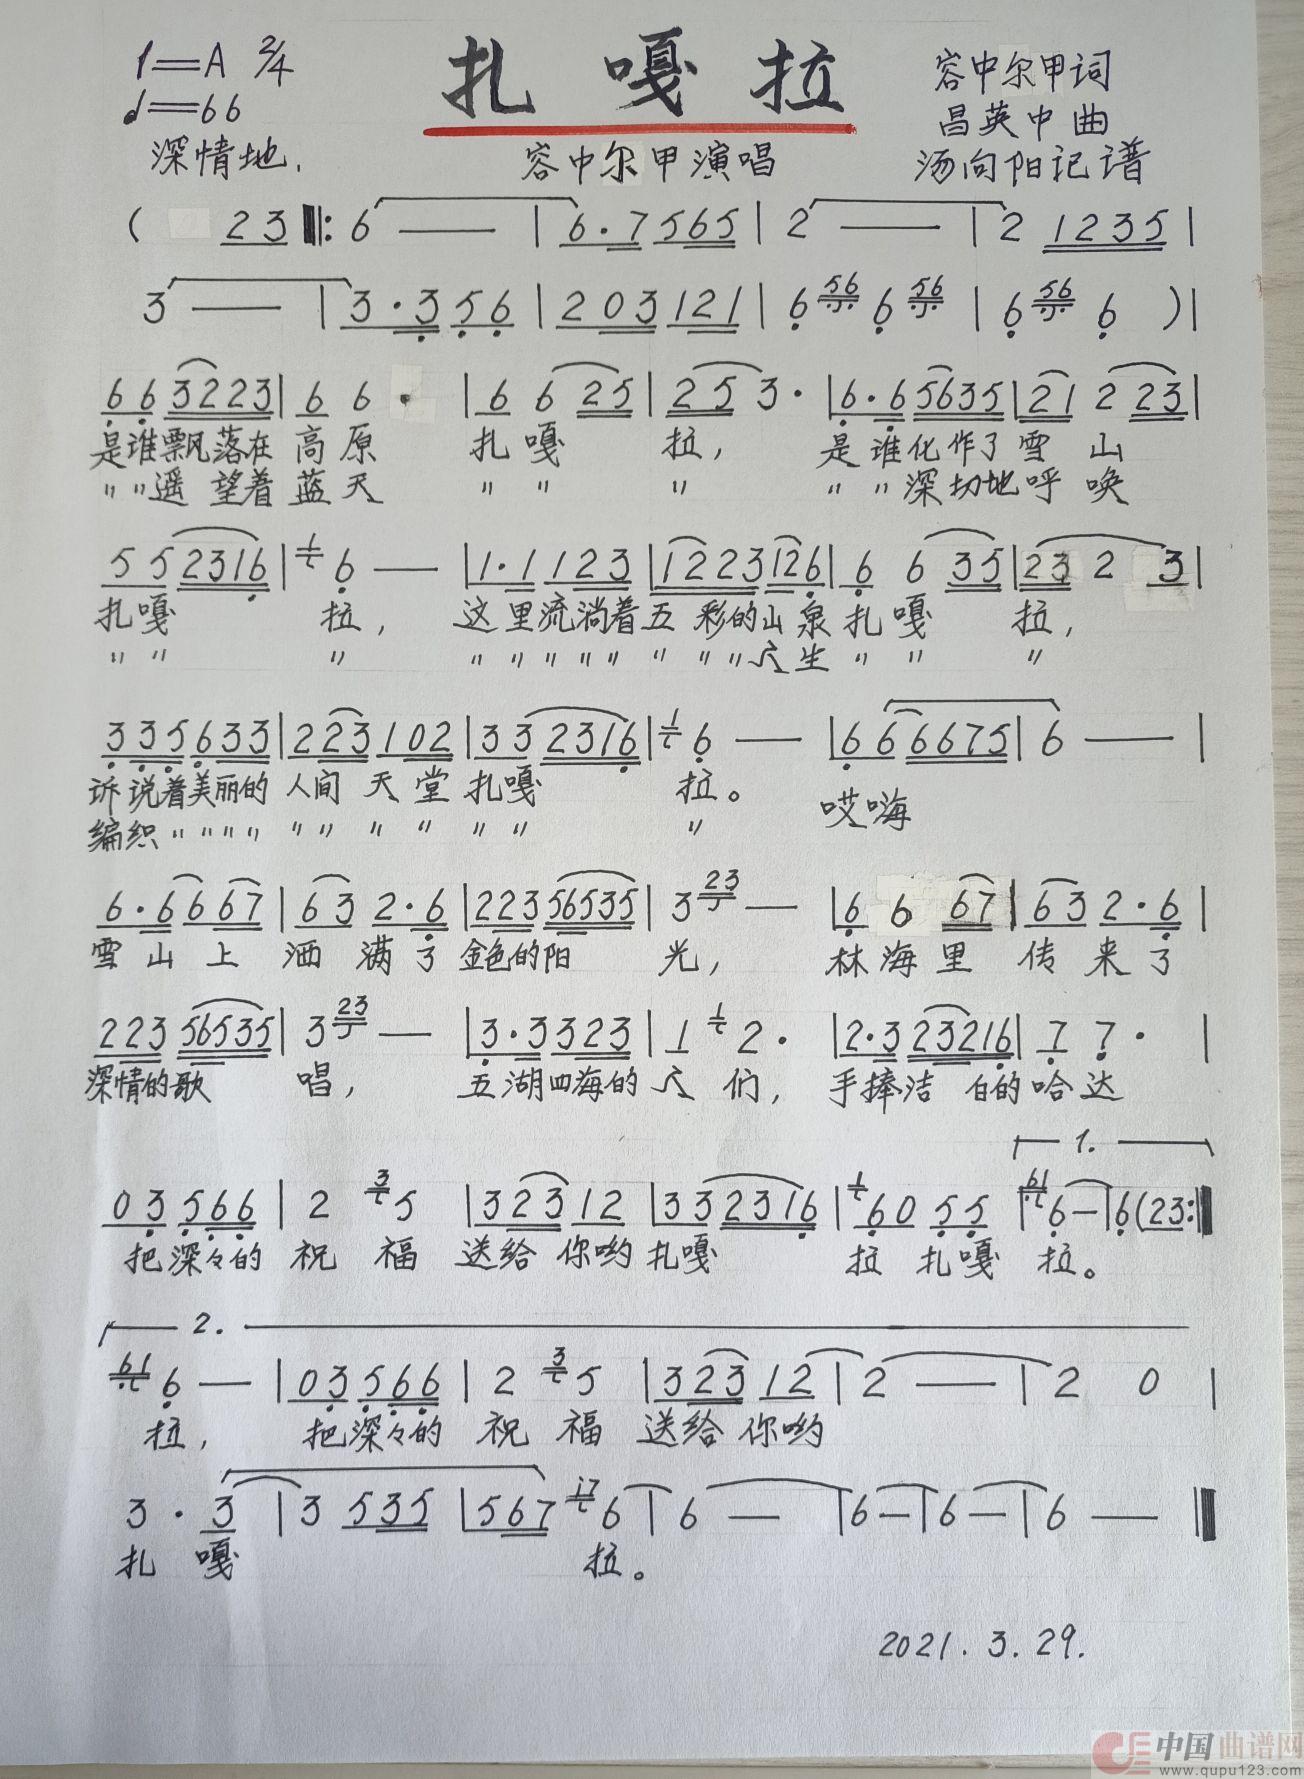 1=A 2/4
扎嘎拉
容中尔甲词
♩=66
昌英中曲
深情地.
容中尔甲演唱
汤向阳记谱
( 23 ‖: 6 — | 6·7 565 | 2 — | 2 1235 |
3 — | 3·3 56 | 203 121 | 6 56 6 56 | 6 56 6 )|
66 3223 | 6 6· | 6 6 25 | 2 5 3· | 6·6 5635 | 21 2 23 |
是谁飘落在高原 扎嘎 拉, 是谁化作了雪山
〃〃遥望着蓝天 〃〃 〃 〃〃深切地呼唤
5 5 2316 | 1 6 — | 1·1 123 | 1223 126 | 6 6 35 | 23 2 3 |
扎嘎 拉, 这里流淌着五彩的山泉扎嘎 拉,
〃〃 〃 〃〃〃〃〃〃〃〃众生〃〃 〃
335633 | 223 102 | 33 2316 | 1 6 — | 66 6675 | 6 — |
诉说着美丽的人间天堂扎嘎 拉。 哎嗨
编织〃〃〃〃〃〃〃〃〃〃 〃
6·6 6 67 | 63 2·6 | 223 56535 | 3 23 — | 6 6 67 | 63 2·6 |
雪山上洒满了金色的阳 光, 林海里传来了
223 56535 | 3 23 — | 3·3 323 | 1 1 2· | 2·3 23216 | 7 7· |
深情的歌 唱, 五湖四海的众们, 手捧洁白的哈达
1.
03 566 | 2 3 5 | 323 12 | 33 2316 | 1 60 55 | 61 6— | 6(23 :‖
把深々的祝福送给你哟扎嘎 拉扎嘎拉。
2.
61 6 — | 03 566 | 2 3 5 | 323 12 | 2 — | 2 0 |
拉, 把深々的祝福送给你哟
3·3 | 3 535 | 567 17 6 | 6 — | 6— | 6— | 6 — ‖
扎嘎 拉。
2021.3.29.
中国曲谱网
www.qupu123.com